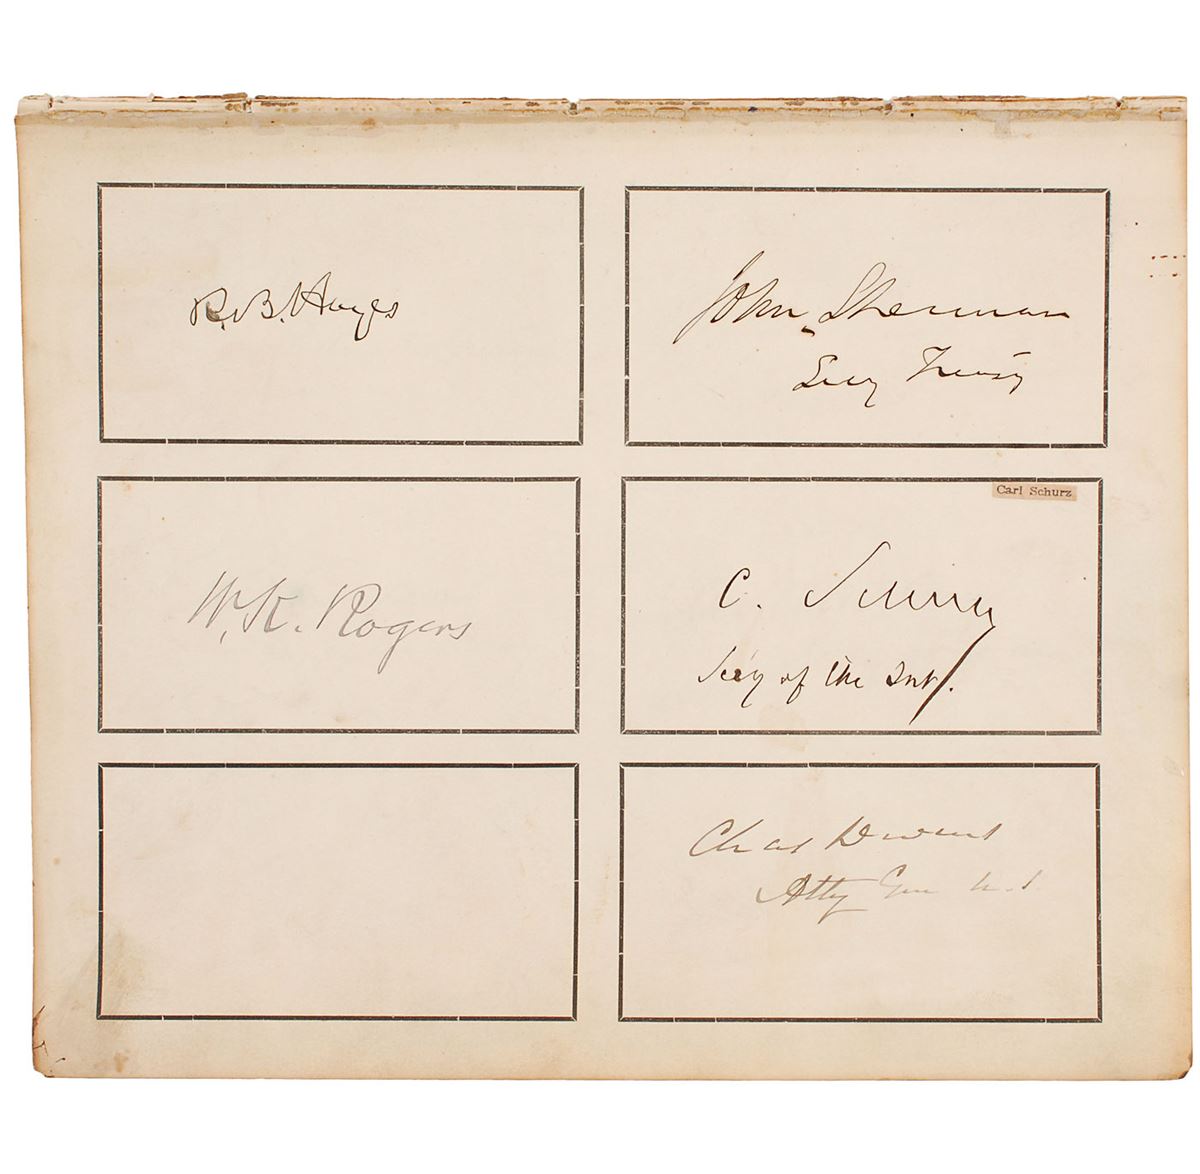 R. B. Hayes
John Sherman
Secy Treasy
W. K. Rogers
Carl Schurz
C. Schurz
Secy of the Int.
Chas Devens
Atty Gen U.S.